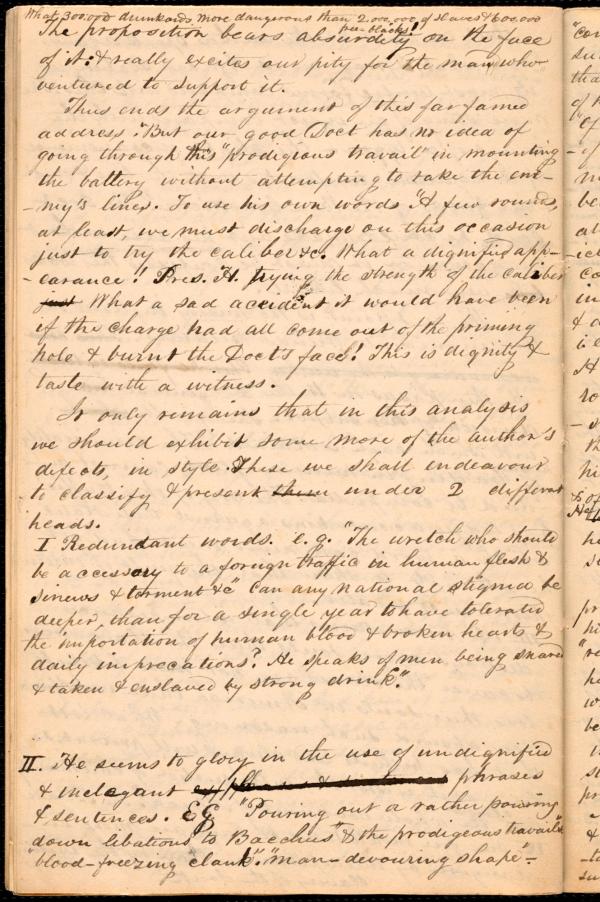 What 300,000 drunkards more dangerous than 2,000,000 of slaves & 600,000
free-blacks!
The proposition bears absurdity on the face
of it: & really excites our pity for the man who
ventured to support it.
Thus ends the argument of this far famed
address. "But our good Doct has no idea of
going through this "prodigious travail" in mounting
the battery without attempting to rake the ene-
-my's lines. To use his own words "A few rounds,
at least, we must discharge on this occasion
just to try the caliber &c. What a dignified app-
-earance! Pres. H. trying the strength of the caliber
just What a sad accident it would have been
if the charge had all come out of the priming
hole & burnt the Doct's face! This is dignity &
taste with a witness.
It only remains that in this analysis
we should exhibit some more of the author's
defects, in style. These we shall endeavour
to classify & present them under 2 different
heads.
I Redundant words. e.g. "The wretch who should
be accessory to a foreign traffic in human flesh &
sinews & torment &c" Can any national stigma be
deeper, than for a single year to have tolerated
the importation of human blood & broken hearts &
daily imprecations? He speaks of men being snared
& taken & enslaved by strong drink".
II. He seems to glory in the use of undignified
& inelegant phrases
& sentences. EG "Pouring out a rather poisong
down libations to Bacchus" & the prodigeous travail"
"blood-freezing clank". "man-devouring shape"-